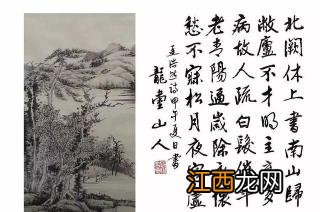 北闕休上書南山歸
敝廬不才明主棄多
病故人疏白髮催年
老青陽逼歲除永懷
愁不寐松月夜窗虛
孟浩然詩甲午夏日書
龍堂山人
江西龙网